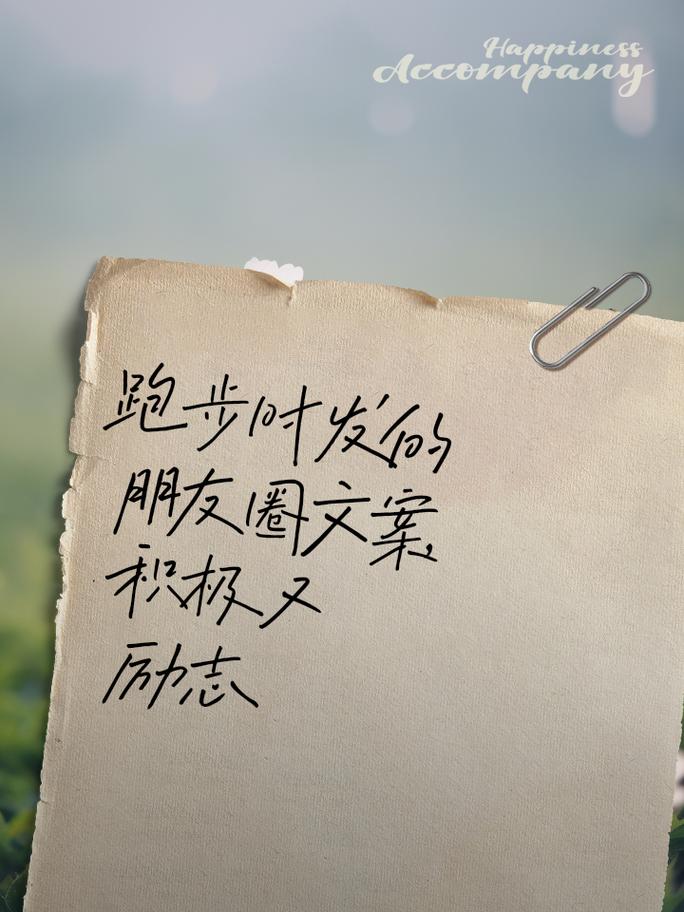 Happiness
Accompany
跑步时发的
朋友圈文案，
积极又
励志